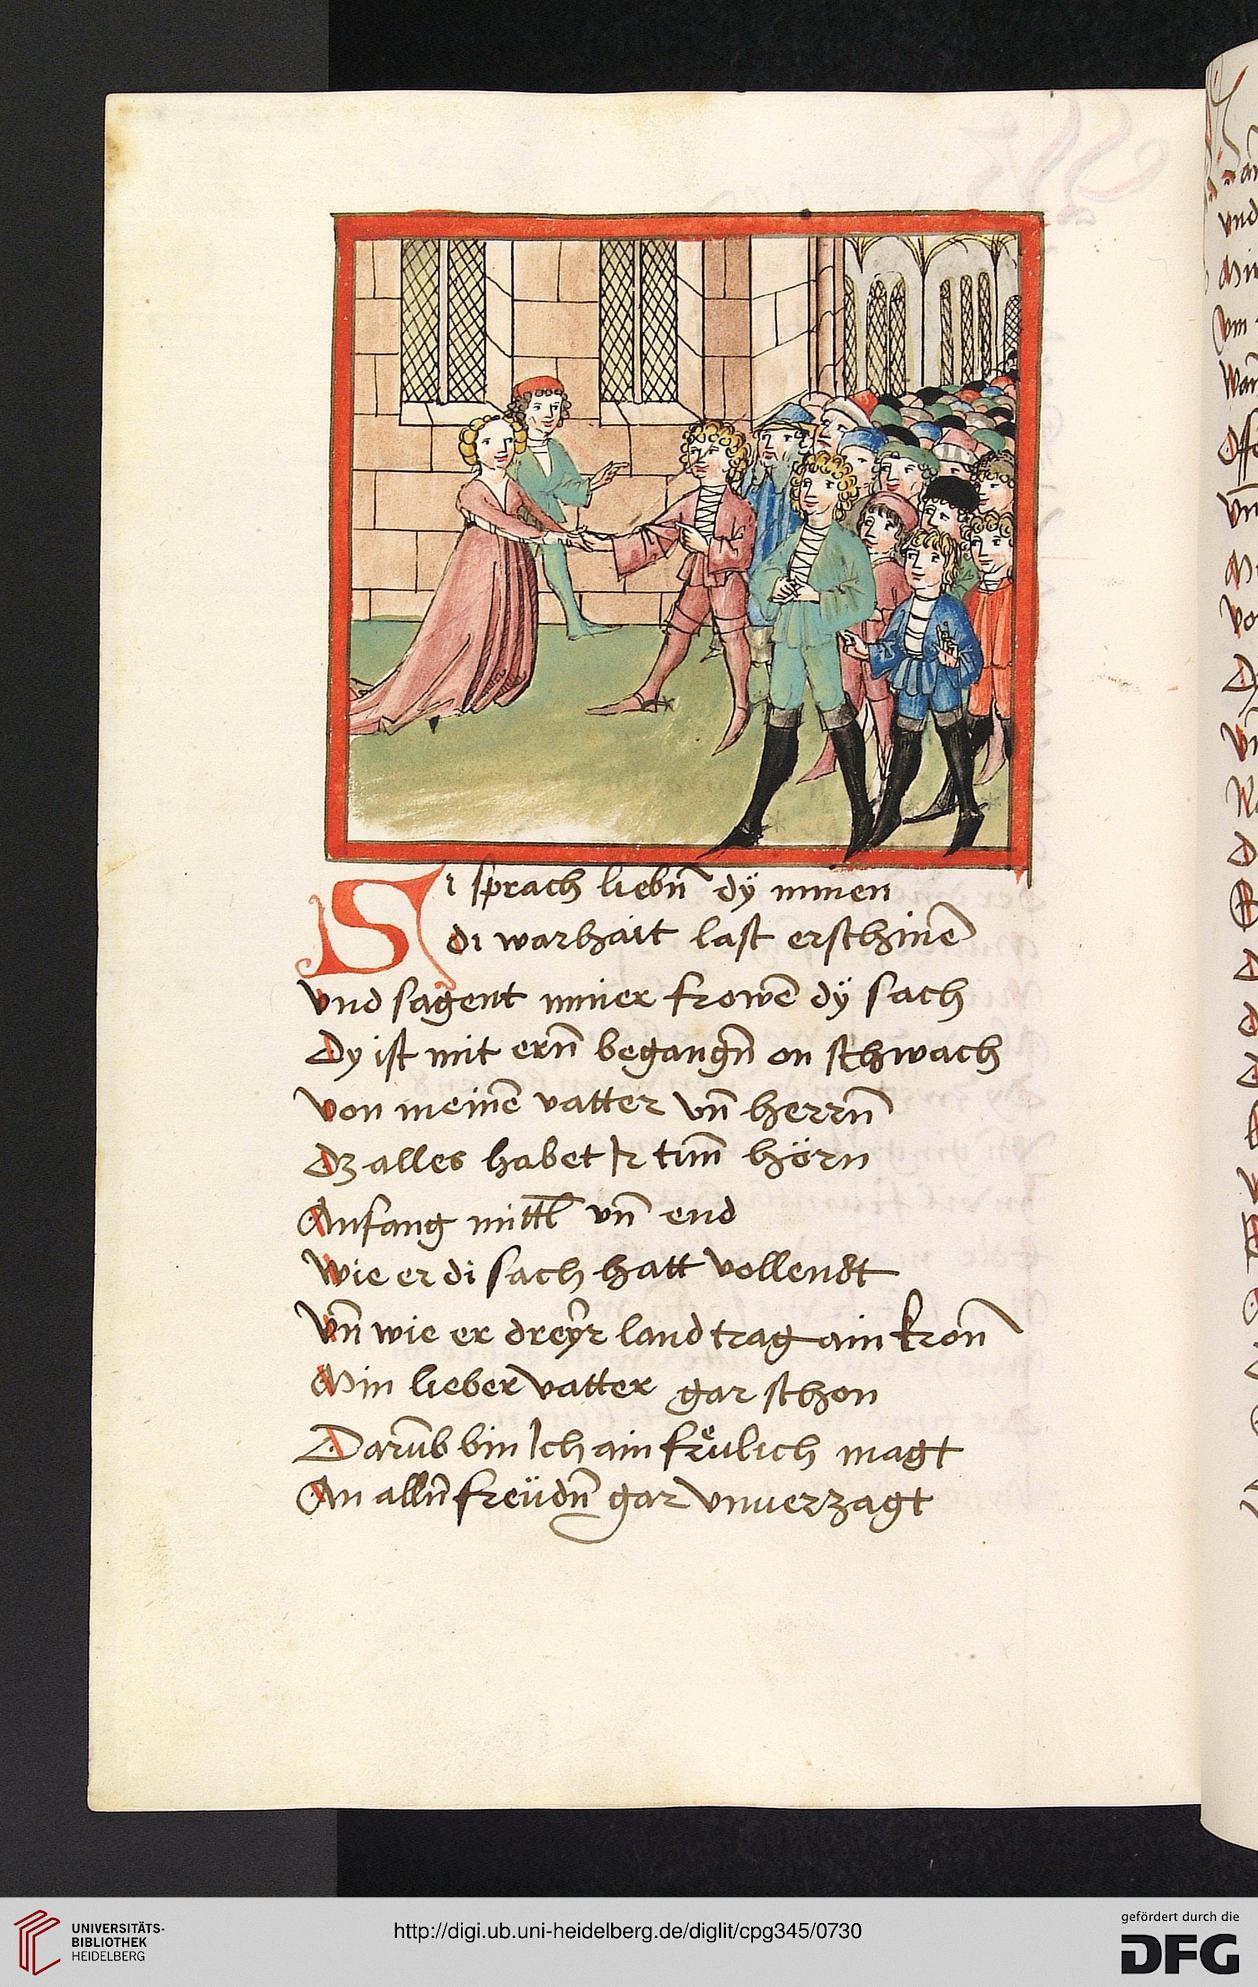 Si sprach liebñ dÿ minen
di warhait last erschinē
Vnd sagent miner frowē dÿ sach
Dy ist mit erñ begangñ on schwach
Von meinē vatter vñ herrñ
Dz alles habet Ir tun̄ hörn
Anfang mittl̄ vñ end
Wie er di sach hatt vollendt
Vñ wie er dreÿr land trag ain kroñ
Min lieber vatter gar schon
Darūb bin Ich ain frͤulich magt
An allñ freüdñ gar vnuerzagt
UNIVERSITÄTS-
BIBLIOTHEK
HEIDELBERG
http://digi.ub.uni-heidelberg.de/diglit/cpg345/0730
gefördert durch die
DFG